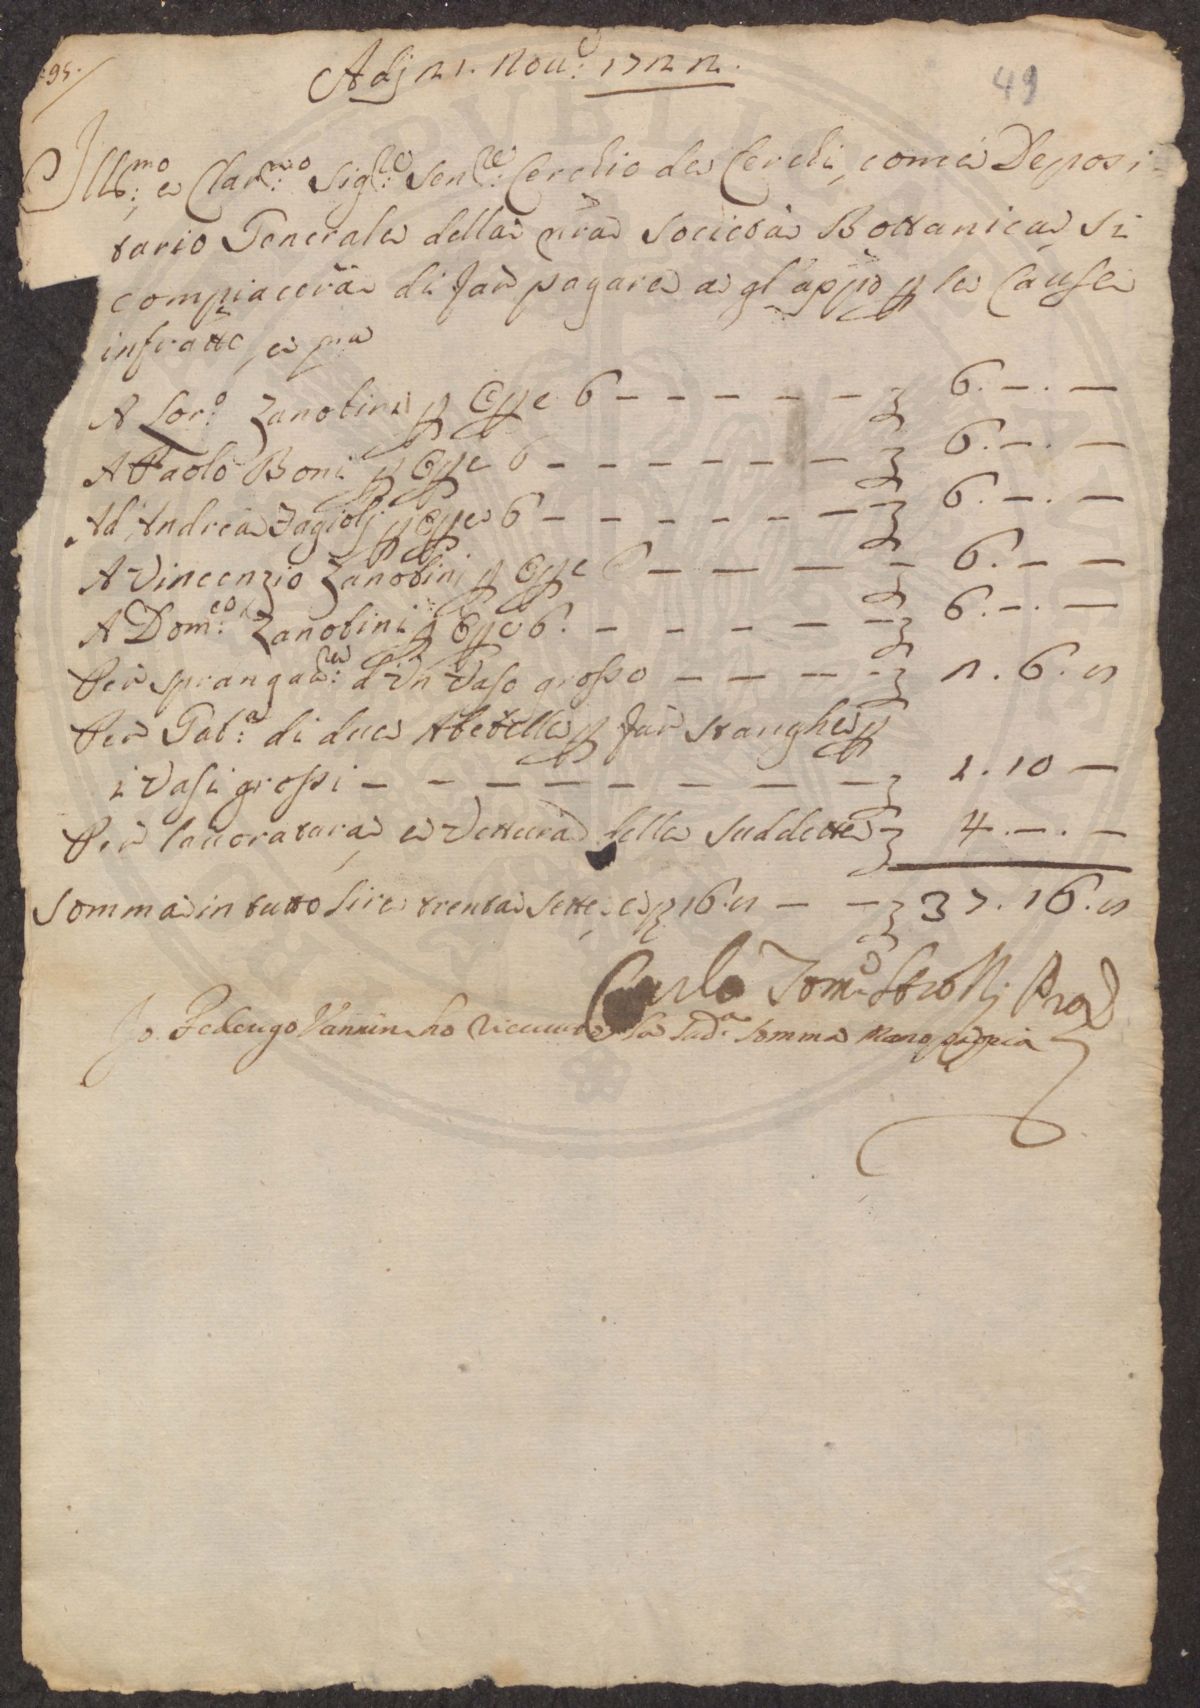 95.
49
Adj 21. Nov.e 1722.
Ill.mo e Clar.mo Sig.re Sen.re Cerchio de Cerchi, come Deposi-
tario Generale della nra Società Bottanica, si
compiacerà di far pagare a gl'appo p le Cause
infratte, e pa
A Lor.o Zanobini p Opre 6 — — — — — — 6. —. —
A Paolo Boni p Opre 6 — — — — — — — 6. —. —
Ad Andrea Fagiolj p Opre 6 — — — — — — 6. —. —
A Vincenzio Zanobinj p Opre 6 — — — — 6. — —
A Dom.co Zanobini p Opre 6. — — — — — 6. —. —
Per sprangat.re d'un Vaso grosso — — — — 1. 6. 8
Per Gab.a di due Abetelle p far stanghe p
i Vasi grossi — — — — — — — — 2. 10 —
Per lavoratura e Vettura delle suddette 4. —. —
Somma in tutto lire trenta sette, e 16. 8 — — 37. 16. 8
Carlo Tom.o Strozzj Pro
Io Federigo Vannini ho riceuuto la sud.a somma mano propia